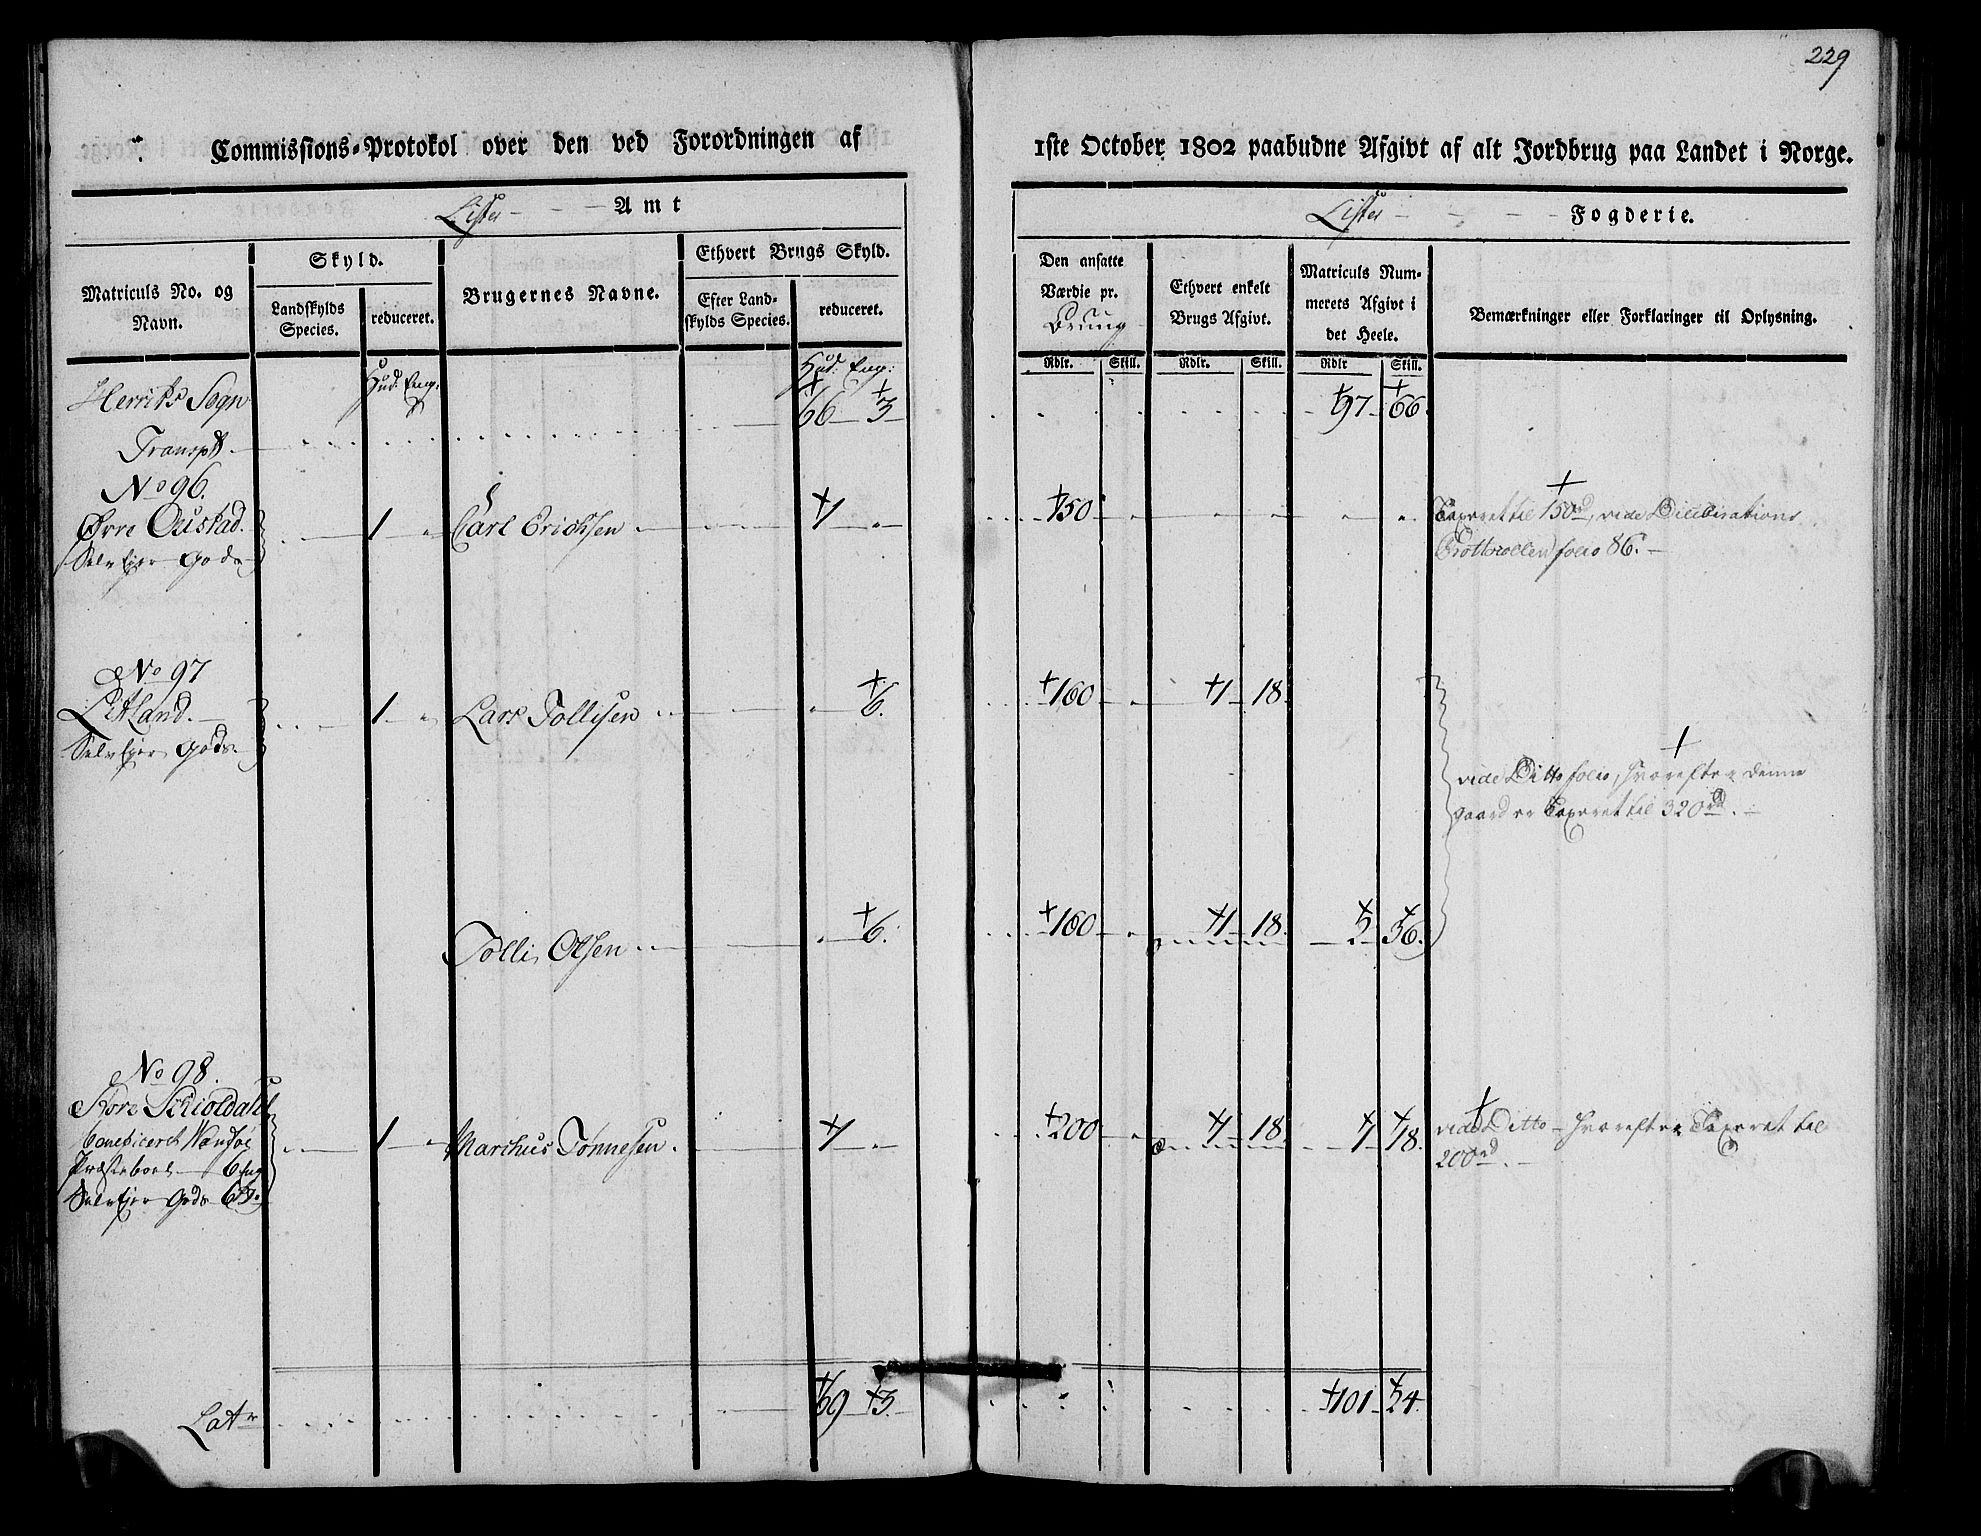 229
Commissions-Protokol over den ved Forordningen af 1ste October 1802 paabudne Afgivt af alt Jordbrug paa Landet i Norge.
Lister - - - Amt
Lister - - - Fogderie.
Matriculs No. og Navn.
Skyld.
Landskylds Species.
reduceret.
Brugernes Navne.
Ethvert Brugs Skyld.
Efter Landskylds Species.
reduceret.
Den ansatte Værdie pr. Brug
Ethvert enkelt Brugs Afgivt.
Matriculs Nummerets Afgivt i det Heele.
Bemærkninger eller Forklaringer til Oplysning.
Hud: Eng:
Hud: Eng:
Rdlr. Skill. Rdlr. Skill. Rdlr Skill.
Herrits Sogn
Transpt 66 3 97 66
No 96.
Øvre Oustad. 1 " Carl Erichsen 1 " 150
Selveier Gods
Taxeret til 150rd, vide Deliberations
Protocollen folio 86.
No 97
Litland. 1 " Lars Tollisen 6. 160 1 18
Selveier Gods
vide Ditto folio, hvorefter denne
gaard er Taxeret til 320rd.
Tolli Olsen 6. 160 1 18. 2 36.
No 98.
Schioldahl 1 " Marchus Tønnesen. 1 " 200 1 18. 1 18.
beneficeret
Præstebord 6 Eng
Selveier Gods 6
vide Ditto - hvorefter Taxeret til
200rd.
Latr 69 3. 101 24.